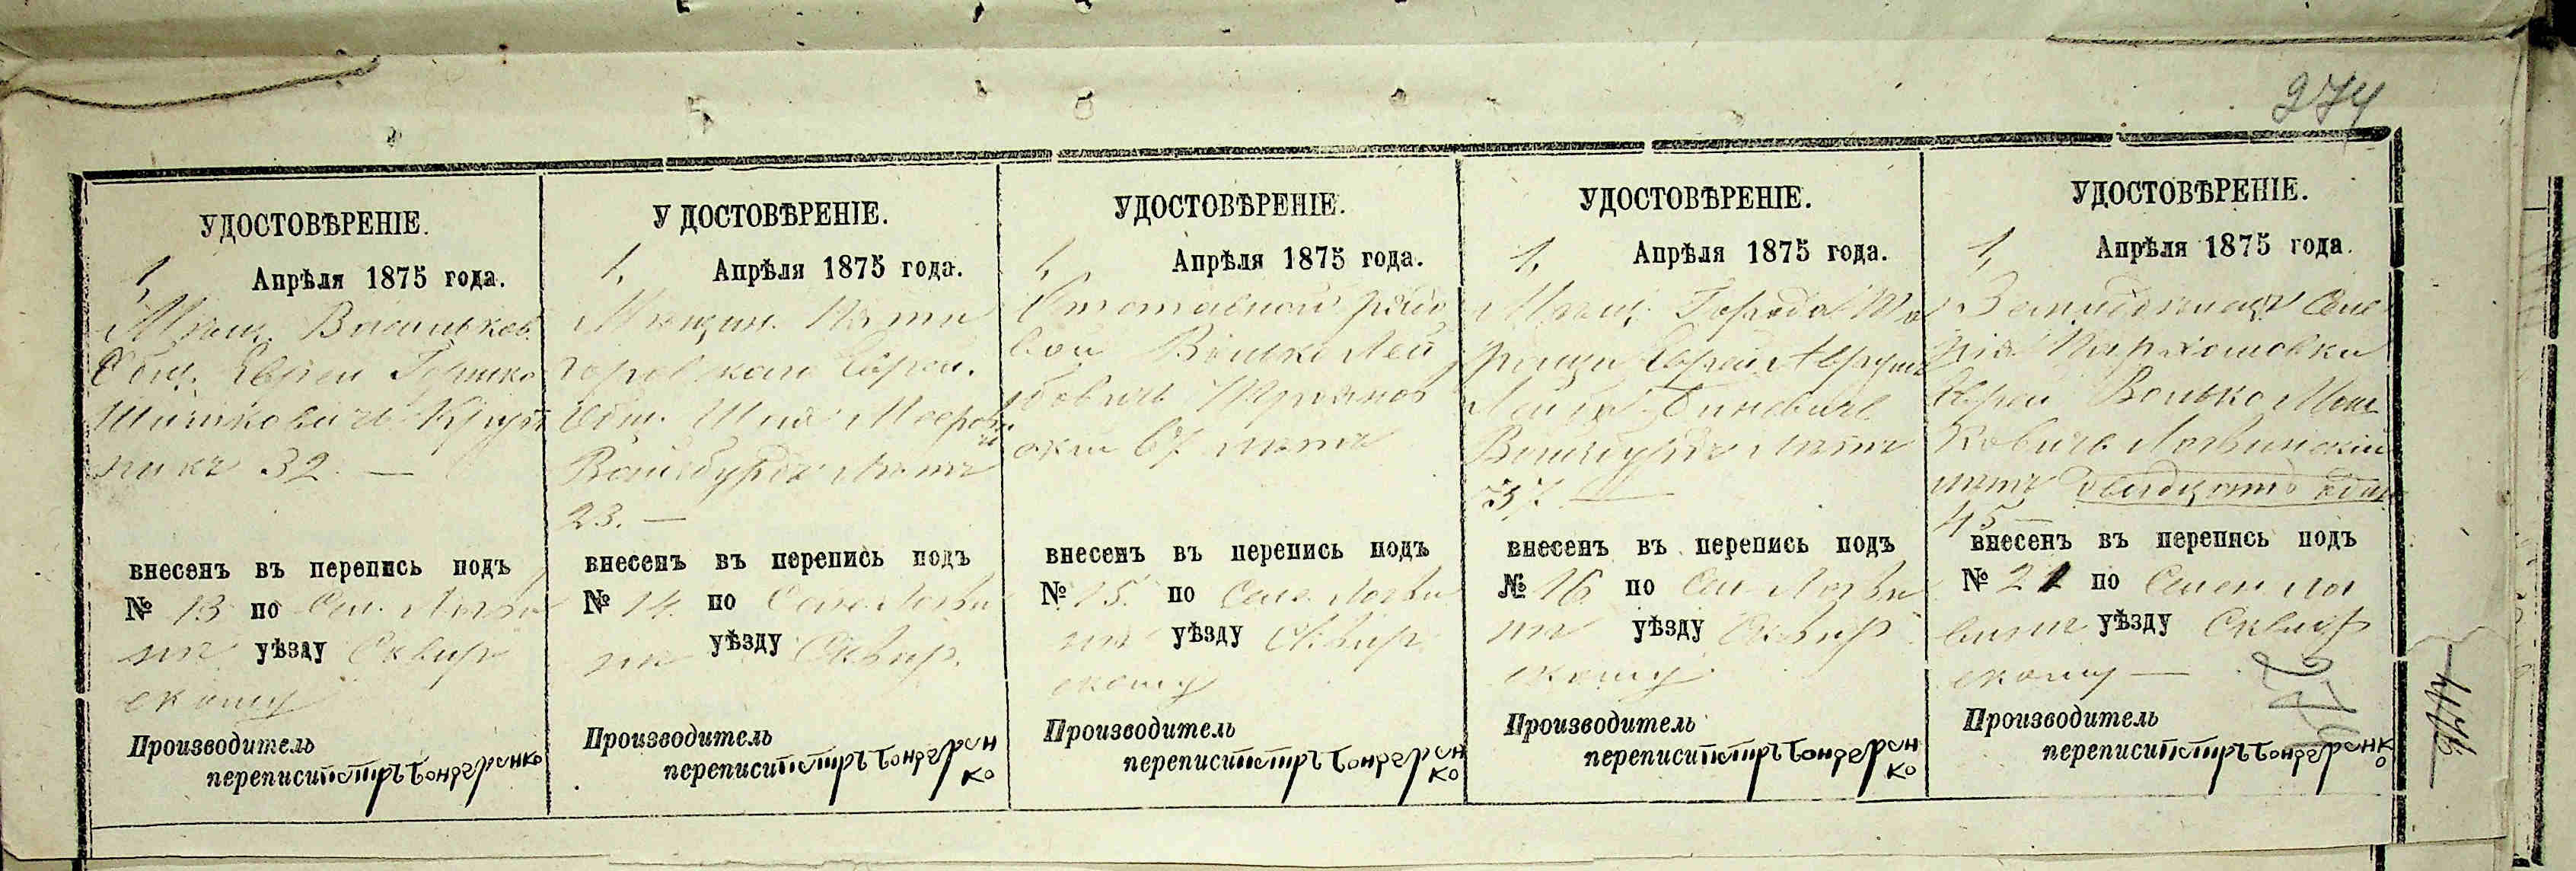 274
УДОСТОВѢРЕНІЕ.
1, Апрѣля 1875 года.
Мѣщ. Васильков.
Общ. Еврей Гершко
Шимковичъ Круп
никъ 32. —
внесенъ въ перепись подъ
№ 13 по Сел. Логви
нѣ уѣзду Сквир
скому
Производитель
переписи Петръ Бондаренко
УДОСТОВѢРЕНІЕ.
1, Апрѣля 1875 года.
Мѣщин. Пяти
горского Еврей.
Общ. Шая Меерови
чъ
Вайсбурдъ лѣтъ
23. —
внесенъ въ перепись подъ
№ 14. по Селе. Логви
нѣ уѣзду Сквир.
Производитель
переписи Петръ Бондарен
ко
УДОСТОВѢРЕНІЕ.
1, Апрѣля 1875 года.
Отставной рядо
вой Волько Лей
бовичъ
скій 67 лѣтъ
внесенъ въ перепись подъ
№ 15. по Селе. Логви
нѣ уѣзду Сквир
скому
Производитель
переписи Петръ Бондарен
ко
УДОСТОВѢРЕНІЕ.
1, Апрѣля 1875 года.
Мѣщ. Города Та
ращи Еврей Аврумъ
Лейба
Вайсбурдъ лѣтъ
37. —
внесенъ въ перепись подъ
№ 16 по Сел. Логви
нѣ уѣзду Сквир
скому
Производитель
переписи Петръ Бондарен
ко
УДОСТОВѢРЕНІЕ.
1, Апрѣля 1875 года.
Селе
нія Пархомовки
Еврей Волько Мош
ковичъ Логвинскій
лѣтъ
45 —
внесенъ въ перепись подъ
№ 21 по Селен. Лог
винѣ уѣзду Сквир
скому —
Производитель
переписи Петръ Бондаренк
о